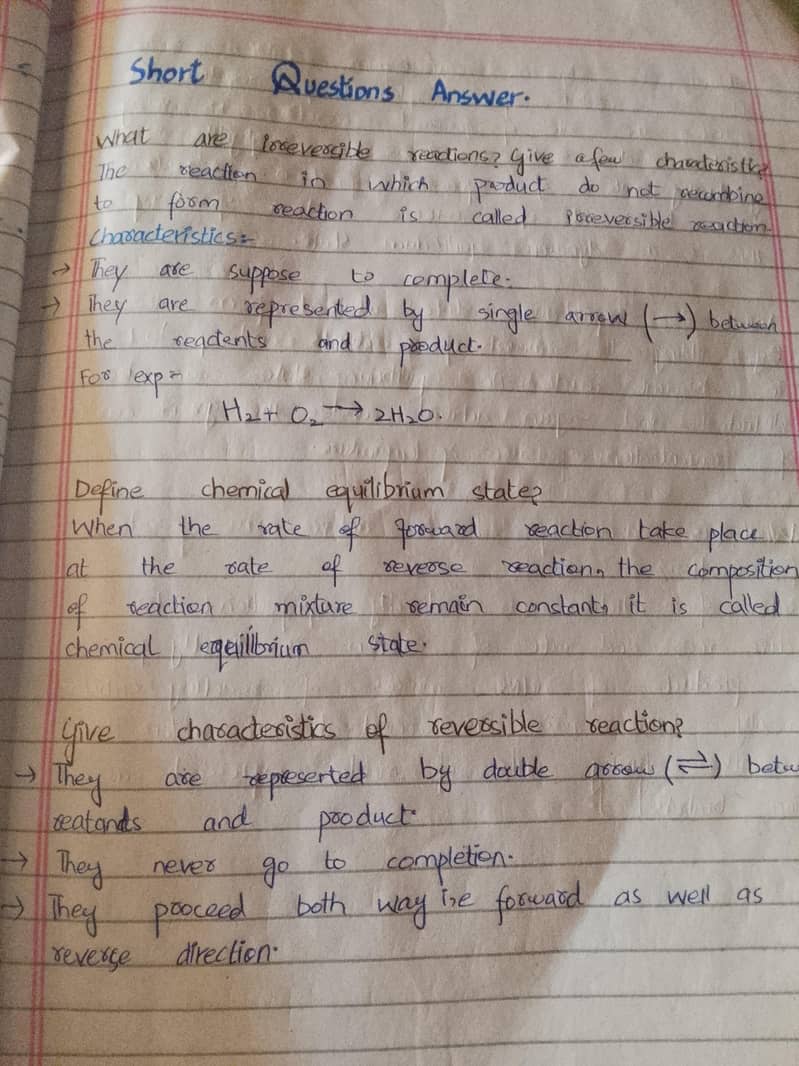 Short Questions Answer.
What are irreversible reactions? Give a few characteristics?
The reaction in which product do not recombine
to form reaction is called irreversible reaction.
Characteristics:-
→ They are suppose to complete.
→ They are represented by single arrow (→) between
the reactents and product.
For exp:-
H₂ + O₂ → 2H₂O.
Define chemical equilibrium state?
When the rate of forward reaction take place
at the rate of reverse reaction, the composition
of reaction mixture remain constant, it is called
chemical eqeuilibrium state.
Give characteristics of reversible reaction?
→ They are represerted by double arrow (⇌) betw
reatands and product.
→ They never go to completion.
→ They proceed both way i.e forward as well as
reverse direction.